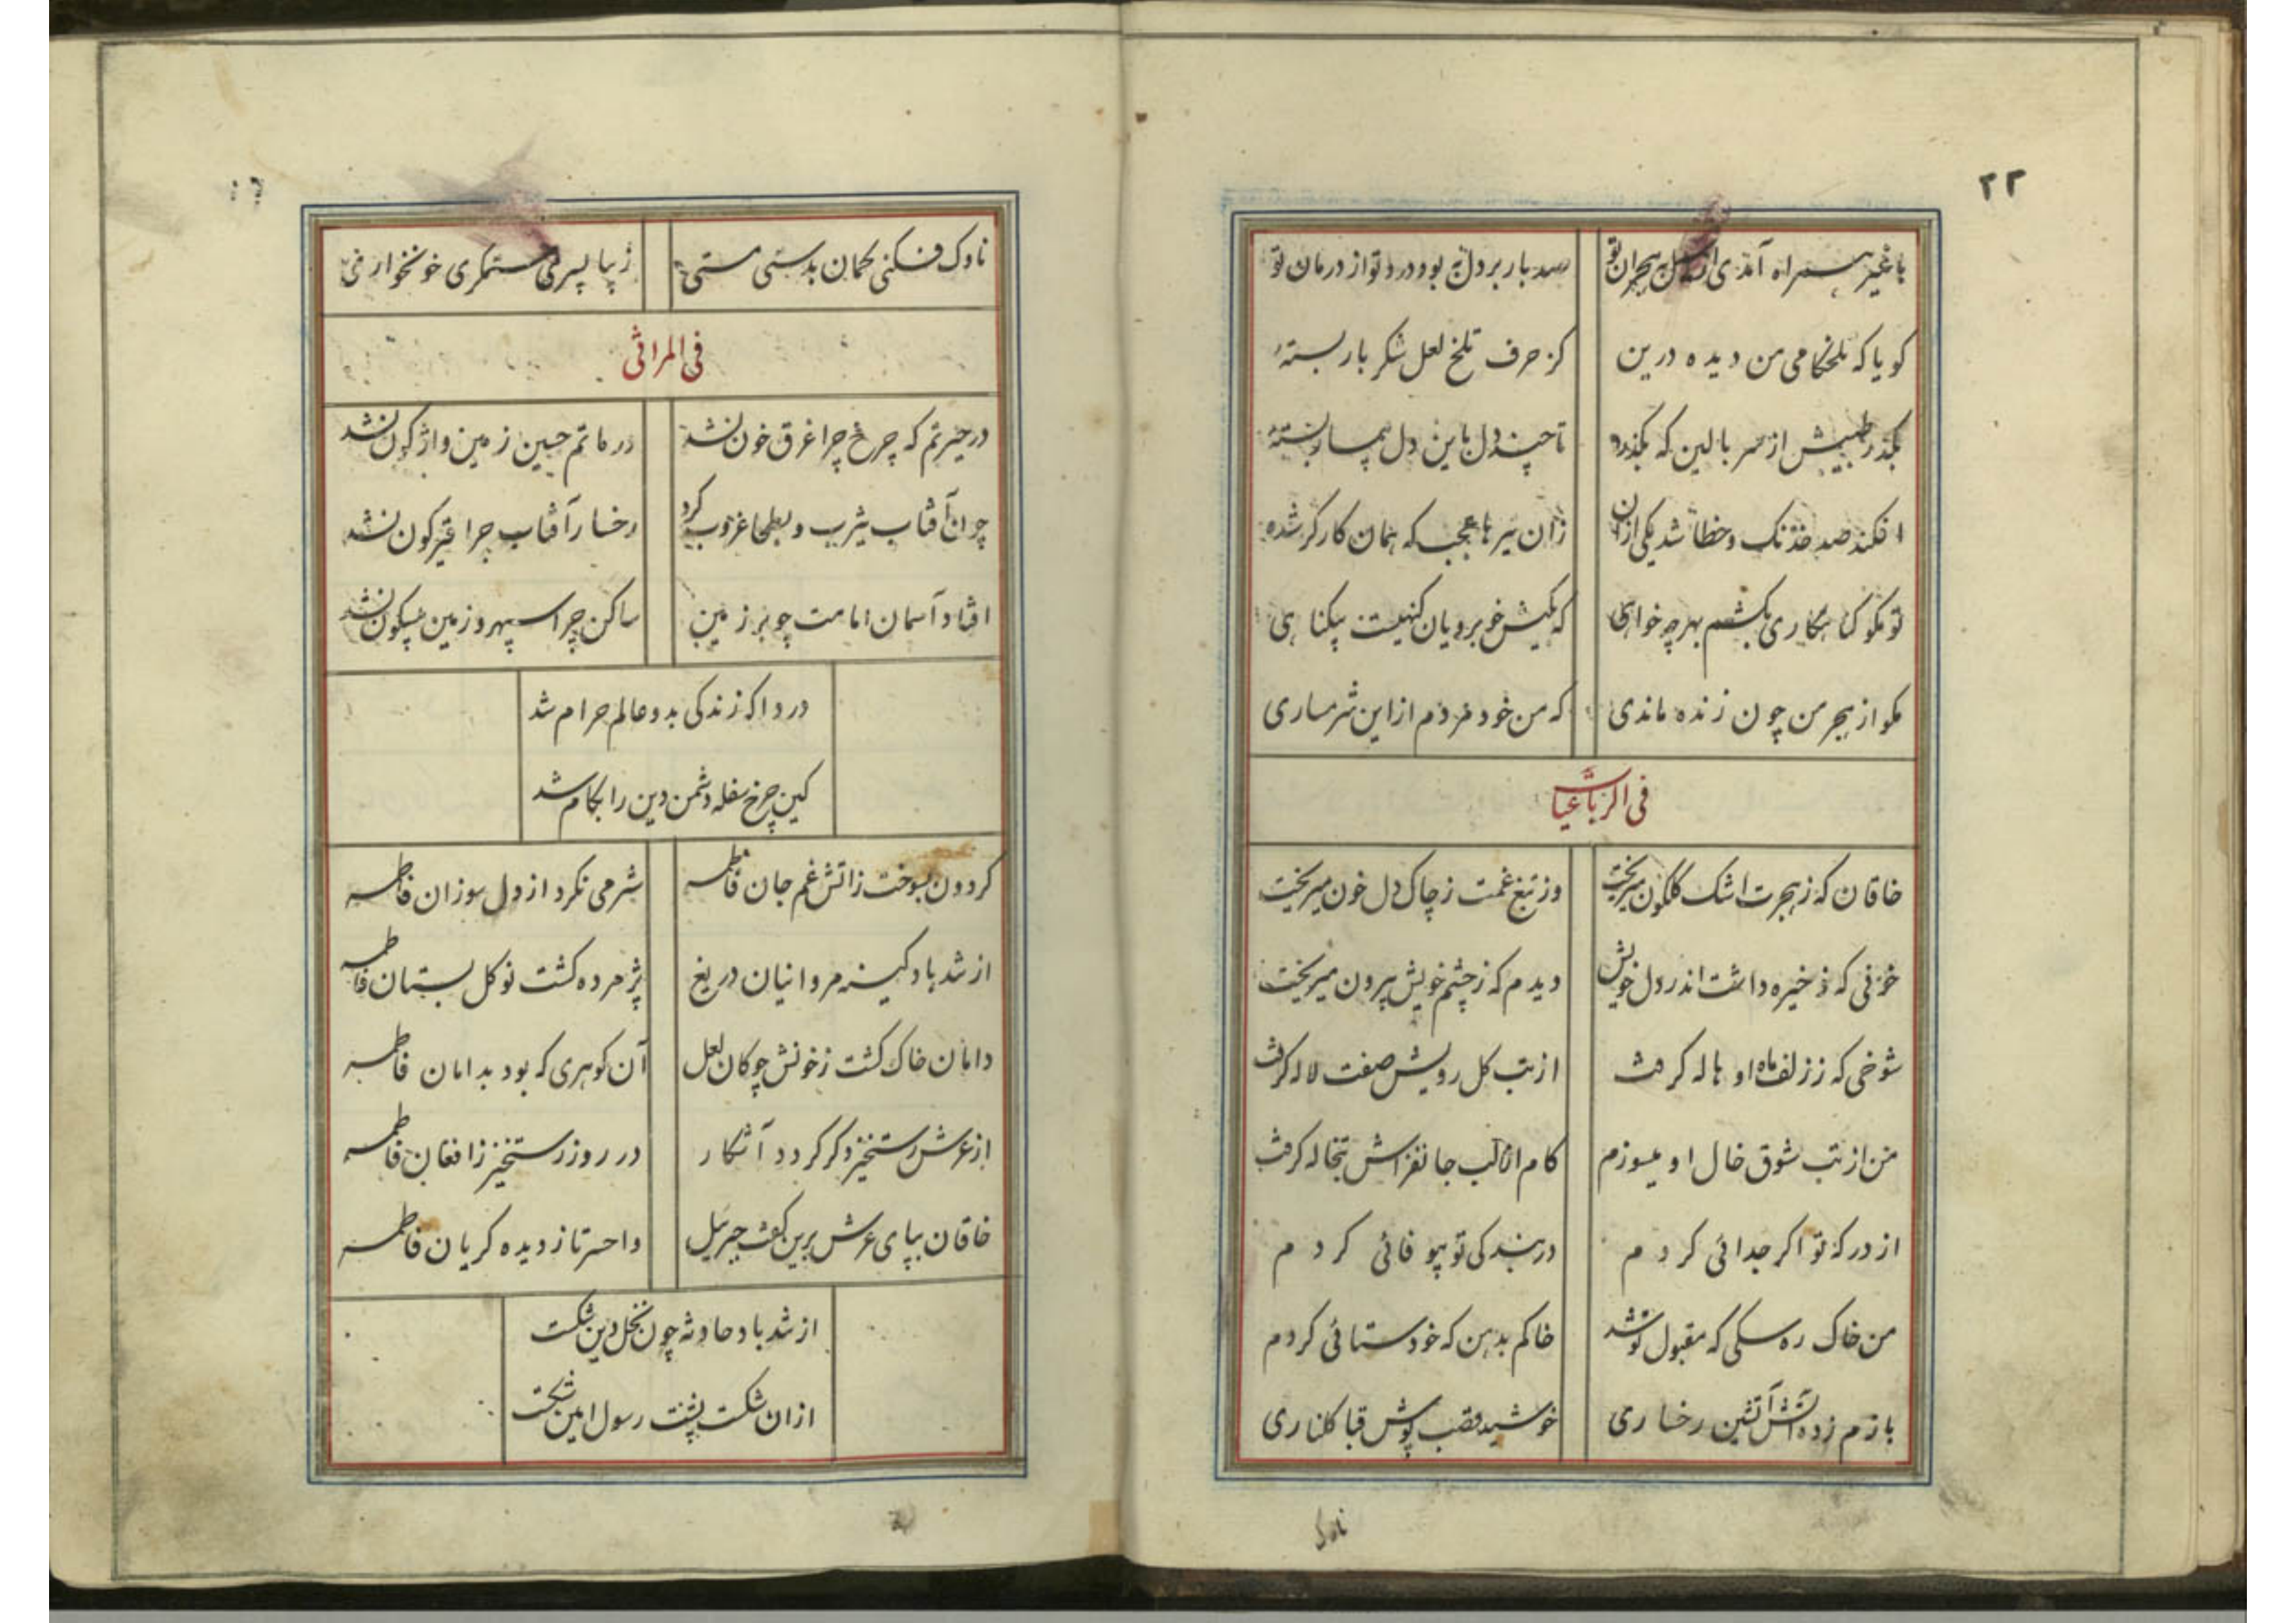 ۲۲
با غیر همراه آمدی از وصل به هجران تو صد بار بر دل به بود درد تو از درمان تو
کویا که تلخکامی من دیده در ین کز حرف تلخ لعل شکر بار بستهٔ
بکذر طبیبش از سر بالین که بکذرد تا چند دل باین دل بیمار بستهٔ
افکند صد خدنک و خطا شد یکی ازان زان تیرها عجب که همان کارکر شده
تو مکو کناهکاری بکشم بهر چه خواهی که بکیش خوبرویان کنهیست بیکناهی
مکو از هجر من چون زنده ماندی که من خود مردم از این شرمساری
فی الرباعیات
خاقان که ز هجرت اشک کلکون میریخت وز تیغ غمت ز چاک دل خون میریخت
خونی که ذخیره داشت اندر دل خویش دیدم که ز چشم خویش بیرون میریخت
شوخی که ز زلف ماه او هاله کرفت از تب کل رویش صفت لاله کرفت
من از تب شوق خال او میسوزم کام از لب جانفزاش تبخاله کرفت
از درکه تو اکر جدائی کردم در بندکی تو بیوفائی کردم
من خاک ره سکی که مقبول تو شد خاکم بدهن که خودستائی کردم
بازم زده آتش آتشین رخساری خورشید قصب پوش قبا کلناری
ناوک
ناوک فکنی کمان بدستی مستی زیبا پسری ستمکری خونخواری
فی المراثی
در حیرتم که چرخ چرا غرق خون نشد در ماتم حسین زمین واژکون نشد
چون آفتاب یثرب و بطحا غروب کرد رخسار آفتاب چرا قیرکون نشد
افتاد آسمان امامت چو بر زمین ساکن چرا سپهر و زمین بیسکون نشد
دردا که زندکی بدو عالم حرام شد
کین چرخ سفله دشمن دین را بکام شد
کردون بسوخت ز آتش غم جان فاطمه شرمی نکرد از دل سوزان فاطمه
از تند باد کینه مروانیان دریغ پژمرده کشت نوکل بستان فاطمه
دامان خاک کشت ز خونش چو کان لعل آن کوهری که بود بدامان فاطمه
از عرش رستخیز دکر کردد آشکار در روز رستخیز ز افغان فاطمه
خاقان بپای عرش برین کفت جبرئیل واحسرتا ز دیده کریان فاطمه
از تند باد حادثه چون نخل دین شکست
ازان شکست پشت رسول امین شکست